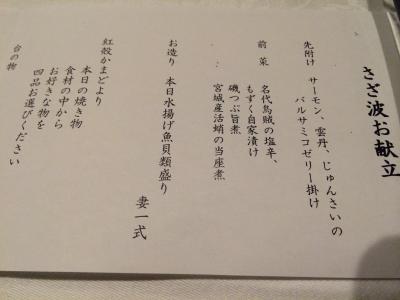 さざ波お献立
先附け サーモン、雲丹、じゅんさいの
バルサミコゼリー掛け
前 菜 名代烏賊の塩辛、
もずく自家漬け
磯つぶ旨煮
宮城産活蛸の当座煮
お造り 本日水揚げ魚貝類盛り
妻一式
紅殻かまどより
本日の焼き物
食材の中から
お好きな物を
四品お選びください
台の物